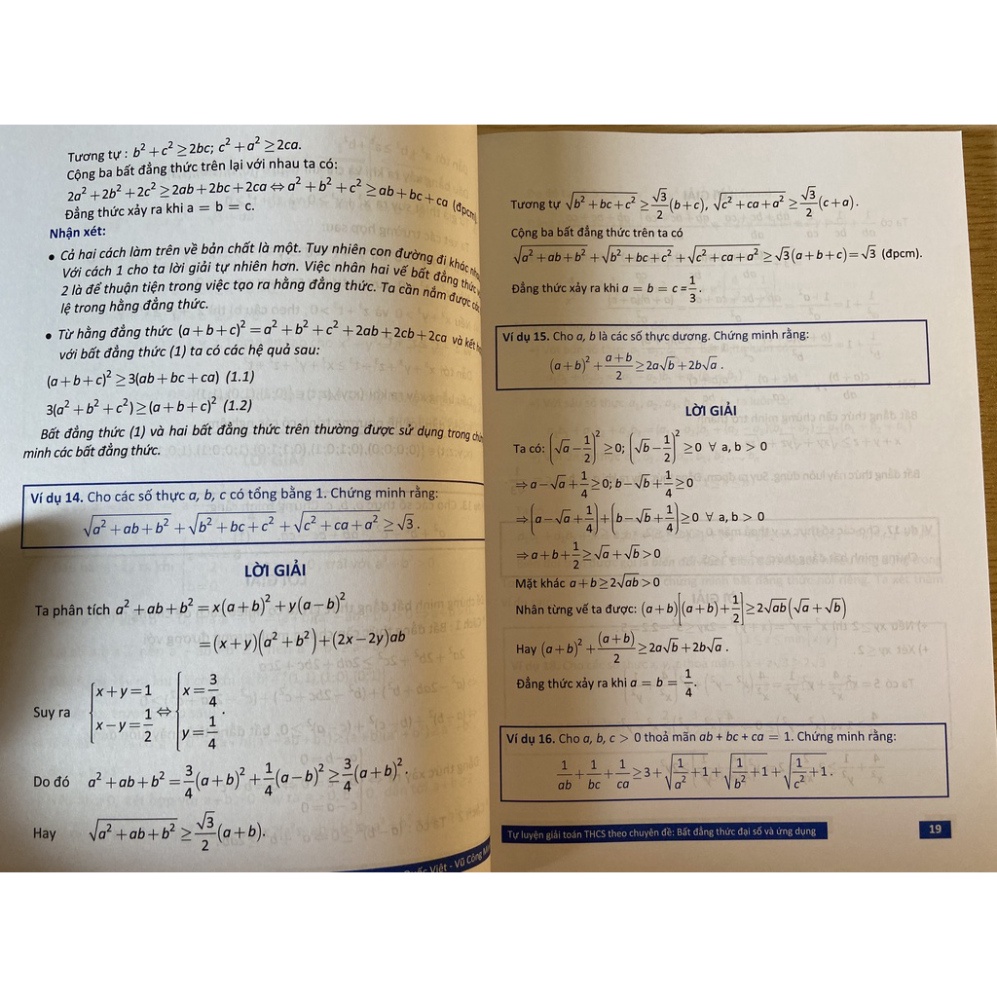 Tương tự : b² + c² ≥ 2bc; c² + a² ≥ 2ca.
Cộng ba bất đẳng thức trên lại với nhau ta có:
2a² + 2b² + 2c² ≥ 2ab + 2bc + 2ca ⇔ a² + b² + c² ≥ ab + bc + ca (đpcm).
Đẳng thức xảy ra khi a = b = c.
Nhận xét:
• Cả hai cách làm trên về bản chất là một. Tuy nhiên con đường đi khác
Với cách 1 cho ta lời giải tự nhiên hơn. Việc nhân hai vế bất đẳng thức
2 là để thuận tiện trong việc tạo ra hằng đẳng thức. Ta cần nắm được
lệ trong hằng đẳng thức.
• Từ hằng đẳng thức (a + b + c)² = a² + b² + c² + 2ab + 2cb + 2ca và kết
với bất đẳng thức (1) ta có các hệ quả sau:
(a + b + c)² ≥ 3(ab + bc + ca) (1.1)
3(a² + b² + c²) ≥ (a + b + c)² (1.2)
Bất đẳng thức (1) và hai bất đẳng thức trên thường được sử dụng trong
minh các bất đẳng thức.
Ví dụ 14. Cho các số thực a, b, c có tổng bằng 1. Chứng minh rằng:
√(a² + ab + b²) + √(b² + bc + c²) + √(c² + ca + a²) ≥ √3.
LỜI GIẢI
Ta phân tích a² + ab + b² = x(a + b)² + y(a − b)²
= (x + y)(a² + b²) + (2x − 2y)ab
Suy ra {x + y = 1; x − y = 1/2 ⇔ {x = 3/4; y = 1/4.
Do đó a² + ab + b² = 3/4(a + b)² + 1/4(a − b)² ≥ 3/4(a + b)².
Hay √(a² + ab + b²) ≥ √3/2(a + b).
Việt - Vũ Công
Tương tự √(b² + bc + c²) ≥ √3/2(b + c), √(c² + ca + a²) ≥ √3/2(c + a).
Cộng ba bất đẳng thức trên ta có
√(a² + ab + b²) + √(b² + bc + c²) + √(c² + ca + a²) ≥ √3(a + b + c) = √3 (đpcm).
Đẳng thức xảy ra khi a = b = c = 1/3.
Ví dụ 15. Cho a, b là các số thực dương. Chứng minh rằng:
(a + b)² + (a + b)/2 ≥ 2a√b + 2b√a.
LỜI GIẢI
Ta có: (√a − 1/2)² ≥ 0; (√b − 1/2)² ≥ 0 ∀ a, b > 0
⇒ a − √a + 1/4 ≥ 0; b − √b + 1/4 ≥ 0
⇒ (a − √a + 1/4) + (b − √b + 1/4) ≥ 0 ∀ a, b > 0
⇒ a + b + 1/2 ≥ √a + √b > 0
Mặt khác a + b ≥ 2√(ab) > 0
Nhân từng vế ta được: (a + b)[(a + b) + 1/2] ≥ 2√(ab)(√a + √b)
Hay (a + b)² + (a + b)/2 ≥ 2a√b + 2b√a.
Đẳng thức xảy ra khi a = b = 1/4.
Ví dụ 16. Cho a, b, c > 0 thoả mãn ab + bc + ca = 1. Chứng minh rằng:
1/ab + 1/bc + 1/ca ≥ 3 + √(1/a² + 1) + √(1/b² + 1) + √(1/c² + 1).
Tự luyện giải toán THCS theo chuyên đề: Bất đẳng thức đại số và ứng dụng
19